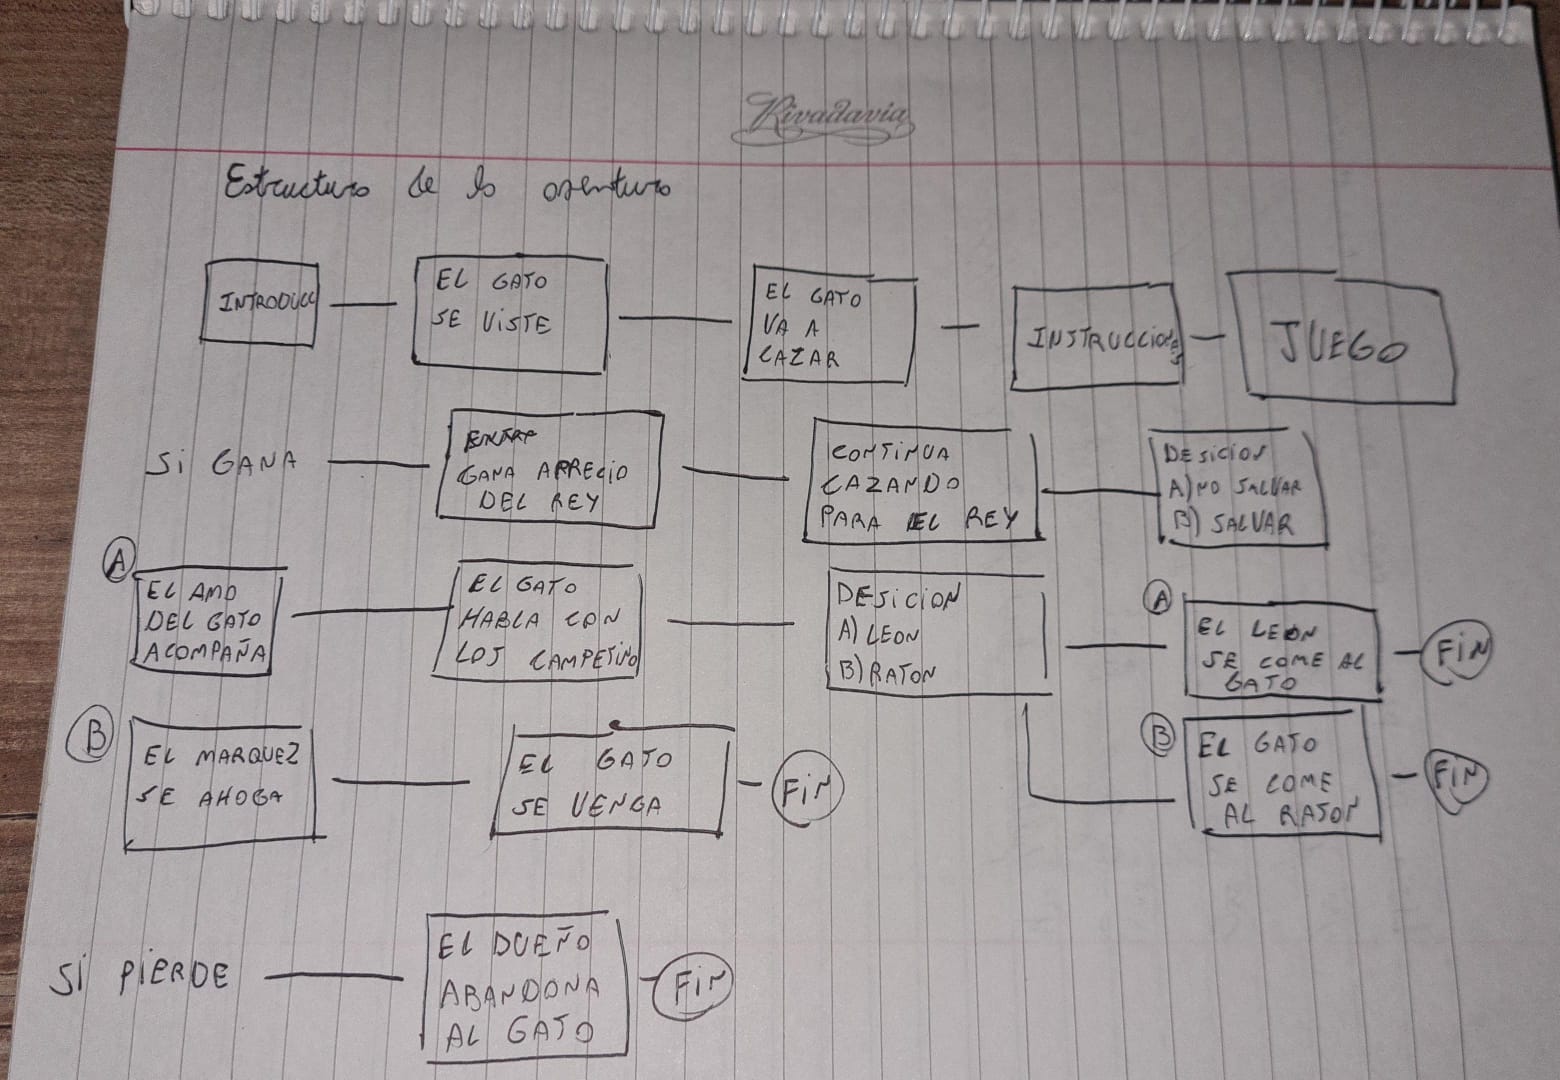 Rivadavia
Estructura de la aventura
INTRODUCC
EL GATO
SE VISTE
EL GATO
VA A
CAZAR
INSTRUCCIONES
JUEGO
SI GANA
GANA APRECIO
DEL REY
CONTINUA
CAZANDO
PARA EL REY
DESICION
A) NO SALVAR
B) SALVAR
A
EL AMO
DEL GATO
ACOMPAÑA
EL GATO
HABLA CON
LOS CAMPESINO
DESICION
A) LEON
B) RATON
A
EL LEON
SE COME AL
GATO
FIN
B
EL MARQUEZ
SE AHOGA
EL GATO
SE VENGA
FIN
B
EL GATO
SE COME
AL RATON
FIN
SI PIERDE
EL DUEÑO
ABANDONA
AL GATO
FIN